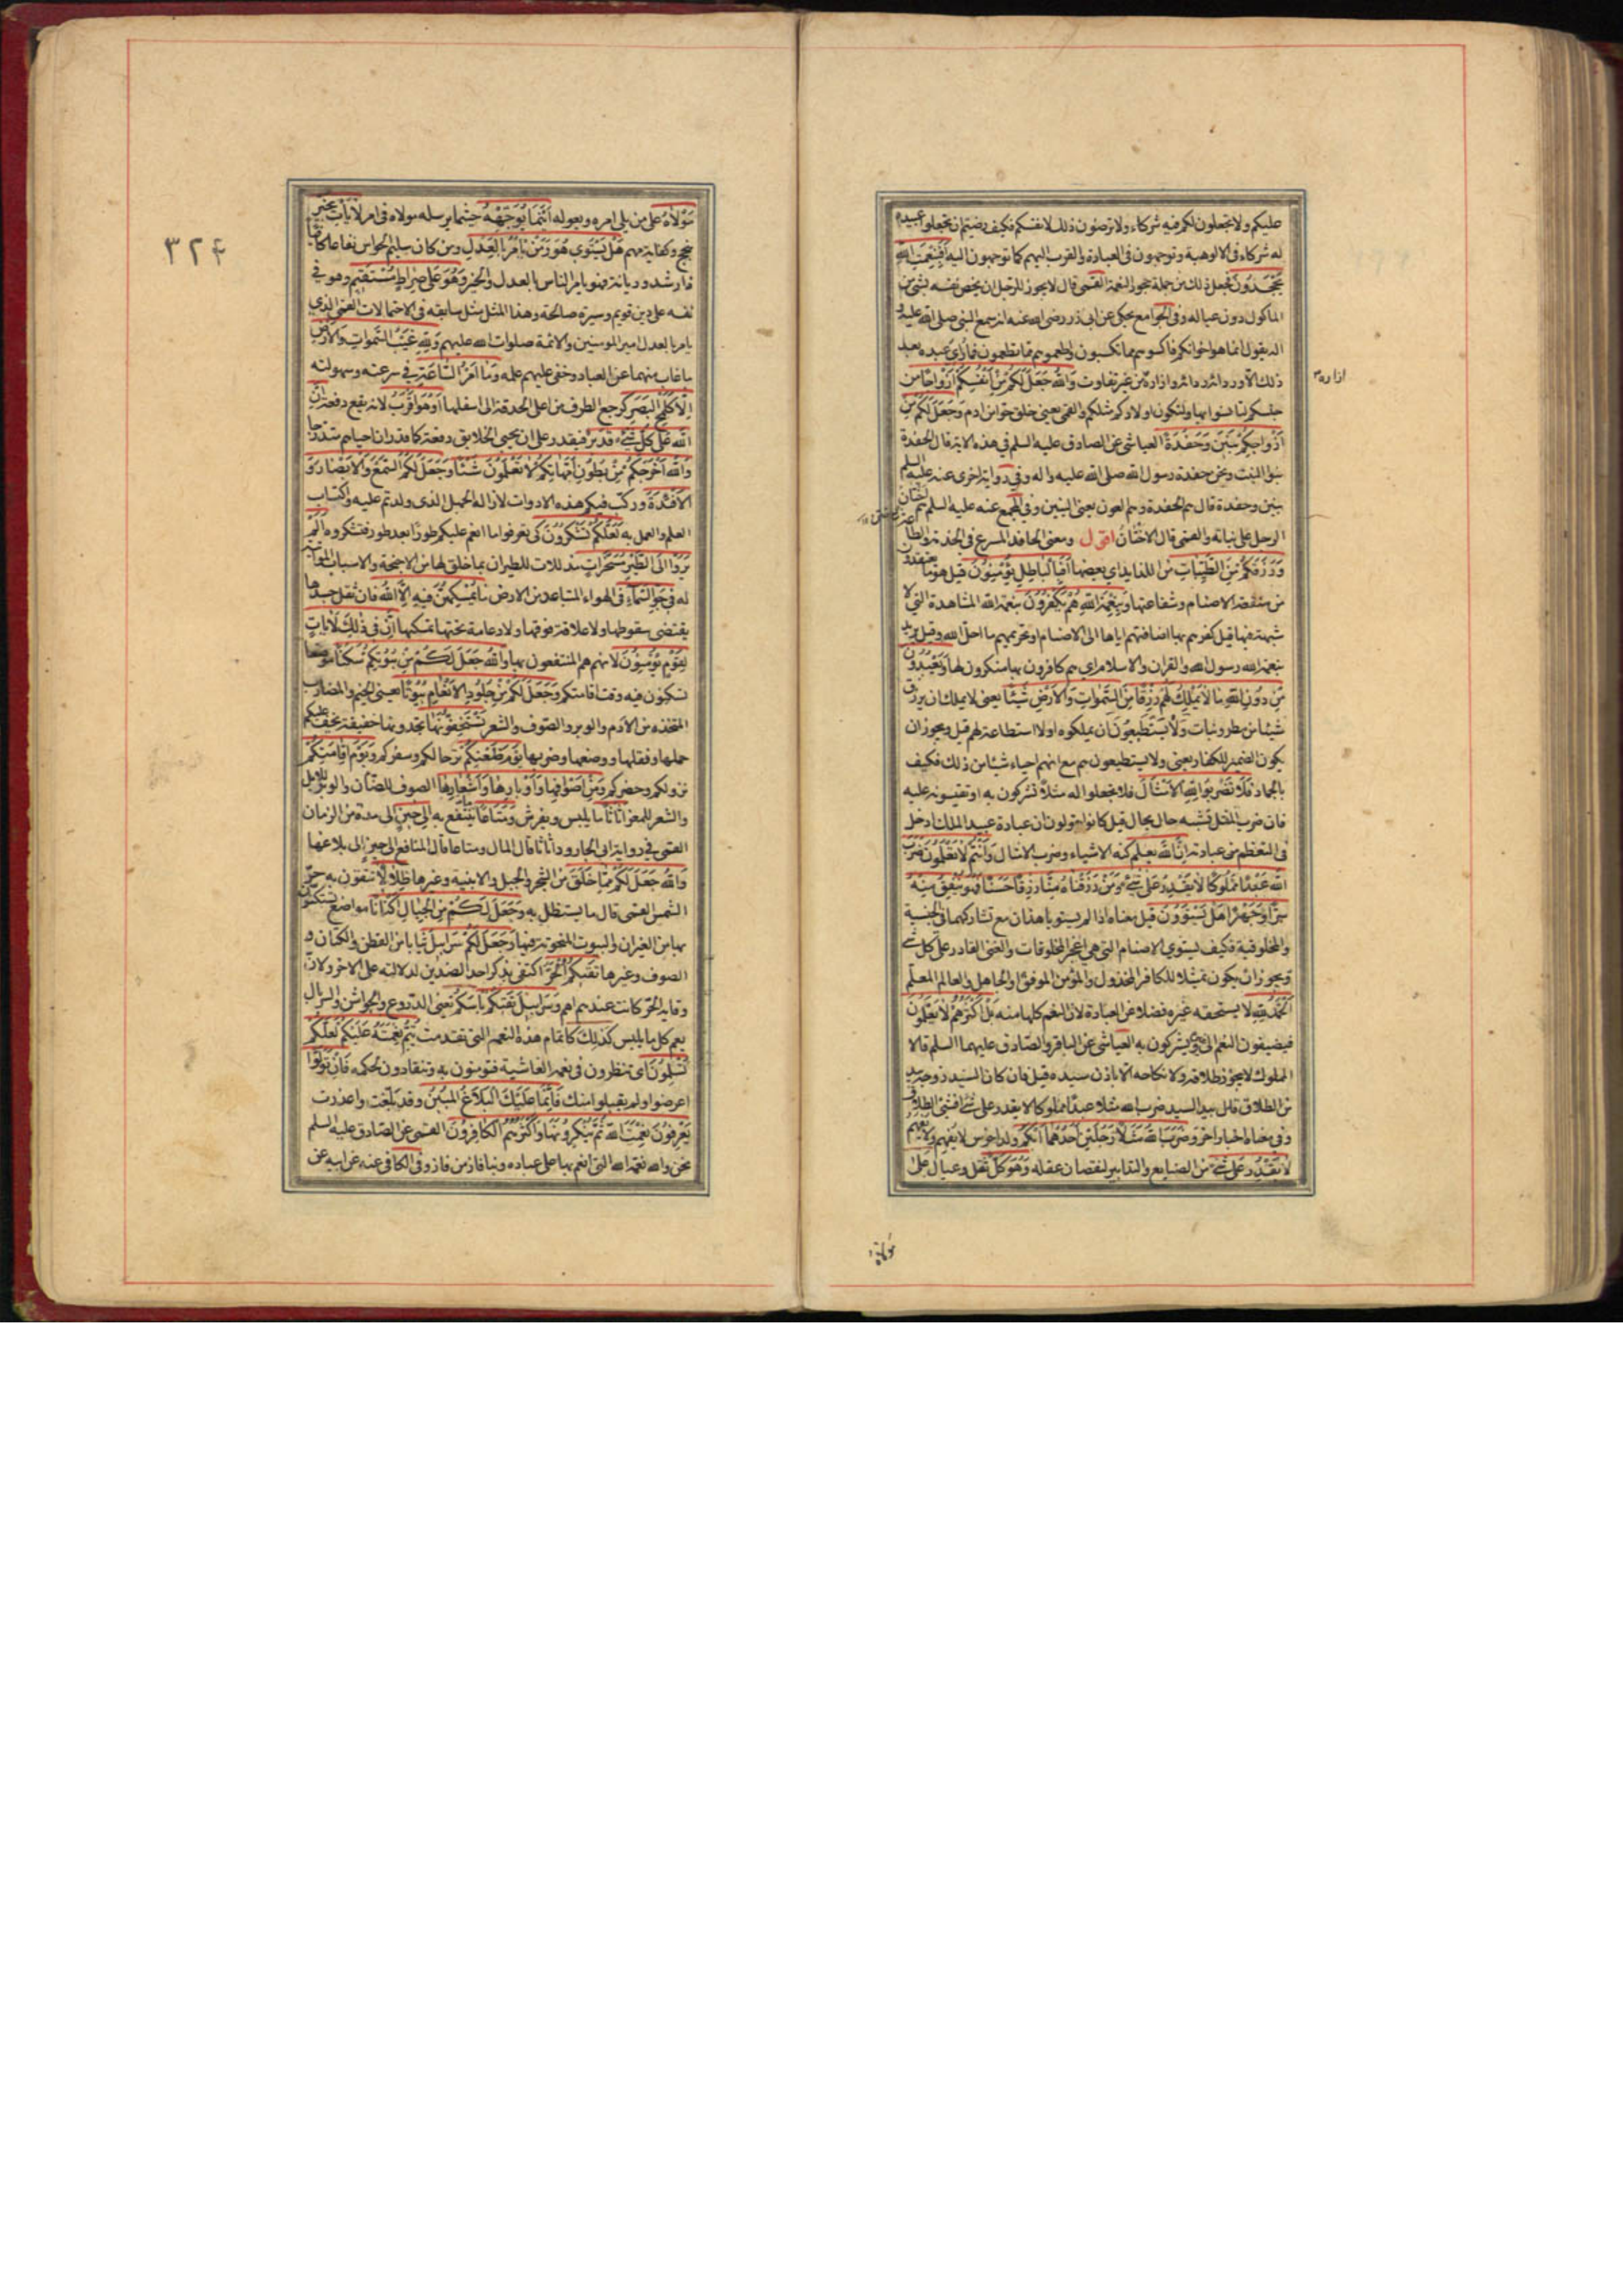 عليكم ولا تجعلون لكم فيه شركاء ولا ترضون ذلك لانفسكم فكيف رضيتم ان تجعلوا عبيده
له شركاء في الالوهية وتوجهون في العبادة والقرب اليهم كما توجهون اليه أَفَبِنِعْمَةِ اللَّهِ
يَجْحَدُونَ فجعل ذلك من جملة جحود النعمة القمى قال لا يجوز للرجل ان يخص نفسه بشئ من
الماكول دون عياله وفي الجوامع يحكى عن ابي ذر رضى الله عنه انه سمع النبي صلى الله عليه و
اله يقول انما هو اخوانكم فاكسوهم مما تكسبون واطعموهم مما تطعمون فما راى عبده بعد
ذلك الا وردائه ردائه وازاره من غير تفاوت وَاللَّهُ جَعَلَ لَكُمْ مِنْ أَنْفُسِكُمْ أَزْوَاجًا من
ازاره
جنسكم لتانسوا بها ولتكون اولادكم مثلكم والقمى يعنى خلق حوا من ادم وَجَعَلَ لَكُمْ مِنْ
أَزْوَاجِكُمْ بَنِينَ وَحَفَدَةً العياشى عن الصادق عليه السلم في هذه الاية قال الحفدة
بنوا البنت ونحن حفدة رسول الله صلى الله عليه واله وفي رواية اخرى عنه عليه السلم
بنين وحفدة قال هم الحفدة وهم العون يعنى البنين وفي المجمع عنه عليه السلم هم اختان
الرجل على بناته والقمى قال الاختان اقول ومعنى الحافد المسرع في الخدمة والطاعة
وَرَزَقَكُمْ مِنَ الطَّيِّبَاتِ من اللذايذ اي بعضها أَفَبِالْبَاطِلِ يُؤْمِنُونَ قيل هو ما يعتقدون
من منفعة الاصنام وشفاعتها وَبِنِعْمَةِ اللَّهِ هُمْ يَكْفُرُونَ بنعمة الله المشاهدة التي لا
شبهة فيها قيل كفرهم بها اضافتهم اياها الى الاصنام او تحريمهم ما احل الله وقيل يريد
بنعمة الله رسول الله والقران والاسلام اي هم كافرون بها منكرون لها وَيَعْبُدُونَ
مِنْ دُونِ اللَّهِ مَا لَا يَمْلِكُ لَهُمْ رِزْقًا مِنَ السَّمَوَاتِ وَالْأَرْضِ شَيْئًا يعنى لا يملك ان يرزق
شيئا من مطر ونبات وَلَا يَسْتَطِيعُونَ ان يملكوه او لا استطاعة لهم قيل ويجوز ان
يكون الضمير للكفار يعنى ولا يستطيعون هم مع انهم احياء شيئا من ذلك فكيف
بالجماد فَلَا تَضْرِبُوا لِلَّهِ الْأَمْثَالَ فلا تجعلوا له مثلا تشركون به او تقيسونه عليه
فان ضرب المثل تشبيه حال بحال قيل كانوا يقولون ان عبادة عبيد الملك ادخل
في التعظيم من عبادته إِنَّ اللَّهَ يَعْلَمُ كنه الاشياء وضرب الامثال وَأَنْتُمْ لَا تَعْلَمُونَ ضَرَبَ
اللَّهُ عَبْدًا مَمْلُوكًا لَا يَقْدِرُ عَلَى شَيْءٍ وَمَنْ رَزَقْنَاهُ مِنَّا رِزْقًا حَسَنًا فَهُوَ يُنْفِقُ مِنْهُ
سِرًّا وَجَهْرًا هَلْ يَسْتَوُونَ قيل معناه اذا لم يستويا هذان مع تشاركهما في الجنسية
والمخلوقية فكيف يستوى الاصنام التي هي اعجز المخلوقات والغنى القادر على كل شئ
ويجوز ان يكون تمثيلا للكافر المخذول والمؤمن الموفق والجاهل والعالم المعلم
الْحَمْدُ لِلَّهِ لا يستحقه غيره فضلا عن العبادة لان النعم كلها منه بَلْ أَكْثَرُهُمْ لَا يَعْلَمُونَ
فيضيفون النعم الى غيره ويشركون به العياشى عن الباقر والصادق عليهما السلم قالا
المملوك لا يجوز طلاقه ولا نكاحه الا باذن سيده قيل فان كان السيد زوجه بيد
من الطلاق قال بيد السيد ضرب الله مثلا عبدا مملوكا لا يقدر على شئ افشئ الطلاق
وفي معناه اخبار اخر وَضَرَبَ اللَّهُ مَثَلًا رَجُلَيْنِ أَحَدُهُمَا أَبْكَمُ ولد اخرس لا يفهم ولا يفهم
لَا يَقْدِرُ عَلَى شَيْءٍ من الصنايع والتدابير لنقصان عقله وَهُوَ كَلٌّ ثقل وعيال عَلَى
مولاه
٣٢۴
مَوْلَاهُ على من يلى امره ويعوله أَيْنَمَا يُوَجِّهْهُ حيثما يرسله مولاه في امر لَا يَأْتِ بِخَيْرٍ
بنجح وكفاية مهم هَلْ يَسْتَوِي هُوَ وَمَنْ يَأْمُرُ بِالْعَدْلِ ومن كان سليم الحواس نفاعا كافيا
ذا رشد وديانة فهو يامر الناس بالعدل والخير وَهُوَ عَلَى صِرَاطٍ مُسْتَقِيمٍ وهو في
نفسه على دين قويم وسيرة صالحة وهذا المثل مثل سابقه في الاحتمالات القمى الذي
يامر بالعدل امير المومنين والائمة صلوات الله عليهم وَلِلَّهِ غَيْبُ السَّمَوَاتِ وَالْأَرْضِ
ما غاب منهما عن العباد وخفى عليهم علمه وَمَا أَمْرُ السَّاعَةِ في سرعته وسهولته
إِلَّا كَلَمْحِ الْبَصَرِ كرجع الطرف من اعلى الحدقة الى اسفلها أَوْ هُوَ أَقْرَبُ لانه يقع دفعة إِنَّ
اللَّهَ عَلَى كُلِّ شَيْءٍ قَدِيرٌ فيقدر على ان يحيى الخلايق دفعة كما قدر ان احياهم متدرجا
وَاللَّهُ أَخْرَجَكُمْ مِنْ بُطُونِ أُمَّهَاتِكُمْ لَا تَعْلَمُونَ شَيْئًا وَجَعَلَ لَكُمُ السَّمْعَ وَالْأَبْصَارَ وَ
الْأَفْئِدَةَ وركب فيكم هذه الادوات لازالة الجهل الذى ولدتم عليه واكتساب
العلم والعمل به لَعَلَّكُمْ تَشْكُرُونَ كى تعرفوا ما انعم عليكم طورا بعد طور فتشكروه أَلَمْ
يَرَوْا إِلَى الطَّيْرِ مُسَخَّرَاتٍ مذللات للطيران بما خلق لها من الاجنحة والاسباب المواتية
له فِي جَوِّ السَّمَاءِ في الهواء المتباعد من الارض مَا يُمْسِكُهُنَّ فيه إِلَّا اللَّهُ فان ثقل جسدها
يقتضى سقوطها ولا علاقة فوقها ولا دعامة تحتها تمسكها إِنَّ فِي ذَلِكَ لَآيَاتٍ
لِقَوْمٍ يُؤْمِنُونَ لانهم هم المنتفعون بها وَاللَّهُ جَعَلَ لَكُمْ مِنْ بُيُوتِكُمْ سَكَنًا موضعا
تسكنون فيه وقت اقامتكم وَجَعَلَ لَكُمْ مِنْ جُلُودِ الْأَنْعَامِ بُيُوتًا يعنى الخيم والمضارب
المتخذة من الادم والوبر والصوف والشعر تَسْتَخِفُّونَهَا تجدونها خفيفة يخف عليكم
حملها ونقلها ووضعها وضربها يَوْمَ ظَعْنِكُمْ ترحالكم وسفركم وَيَوْمَ إِقَامَتِكُمْ
نزولكم وحضركم وَمِنْ أَصْوَافِهَا وَأَوْبَارِهَا وَأَشْعَارِهَا الصوف للضان والوبر للابل
والشعر للمعز أَثَاثًا ما يلبس ويفرش وَمَتَاعًا ينتفع به إِلَى حِينٍ الى مدة من الزمان
القمى في رواية ابى الجارود اثاثا قال المال ومتاعا قال المنافع الى حين الى بلاغها
وَاللَّهُ جَعَلَ لَكُمْ مِمَّا خَلَقَ من الشجر والجبل والابنية وغيرها ظِلَالًا تتقون به حر
الشمس القمى قال ما يستظل به وَجَعَلَ لَكُمْ مِنَ الْجِبَالِ أَكْنَانًا مواضع تستكنون
بها من الغيران والبيوت المنحوتة فيها وَجَعَلَ لَكُمْ سَرَابِيلَ ثيابا من القطن والكتان و
الصوف وغيرها تَقِيكُمُ الْحَرَّ اكتفى بذكر احد الضدين لدلالته على الاخر ولان
وقاية الحر كانت عندهم اهم وَسَرَابِيلَ تَقِيكُمْ بَأْسَكُمْ يعنى الدروع والجواشن والسربال
يعم كل ما يلبس كَذَلِكَ كاتمام هذه النعم التي تقدمت يُتِمُّ نِعْمَتَهُ عَلَيْكُمْ لَعَلَّكُمْ
تُسْلِمُونَ اى تنظرون في نعمه الفاشية فتومنون به وتنقادون لحكمه فَإِنْ تَوَلَّوْا
اعرضوا ولم يقبلوا منك فَإِنَّمَا عَلَيْكَ الْبَلَاغُ الْمُبِينُ وقد بلغت واعذرت
يَعْرِفُونَ نِعْمَتَ اللَّهِ ثُمَّ يُنْكِرُونَهَا وَأَكْثَرُهُمُ الْكَافِرُونَ القمى عن الصادق عليه السلم
نحن والله نعمة الله التي انعم بها على عباده وبنا فاز من فاز وفي الكافى عنه عن ابيه عن